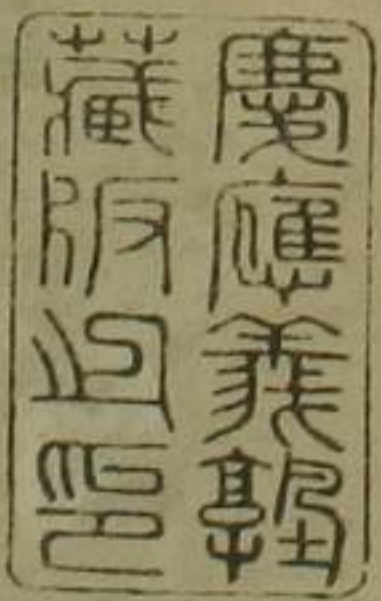 慶應義塾
藏版之印